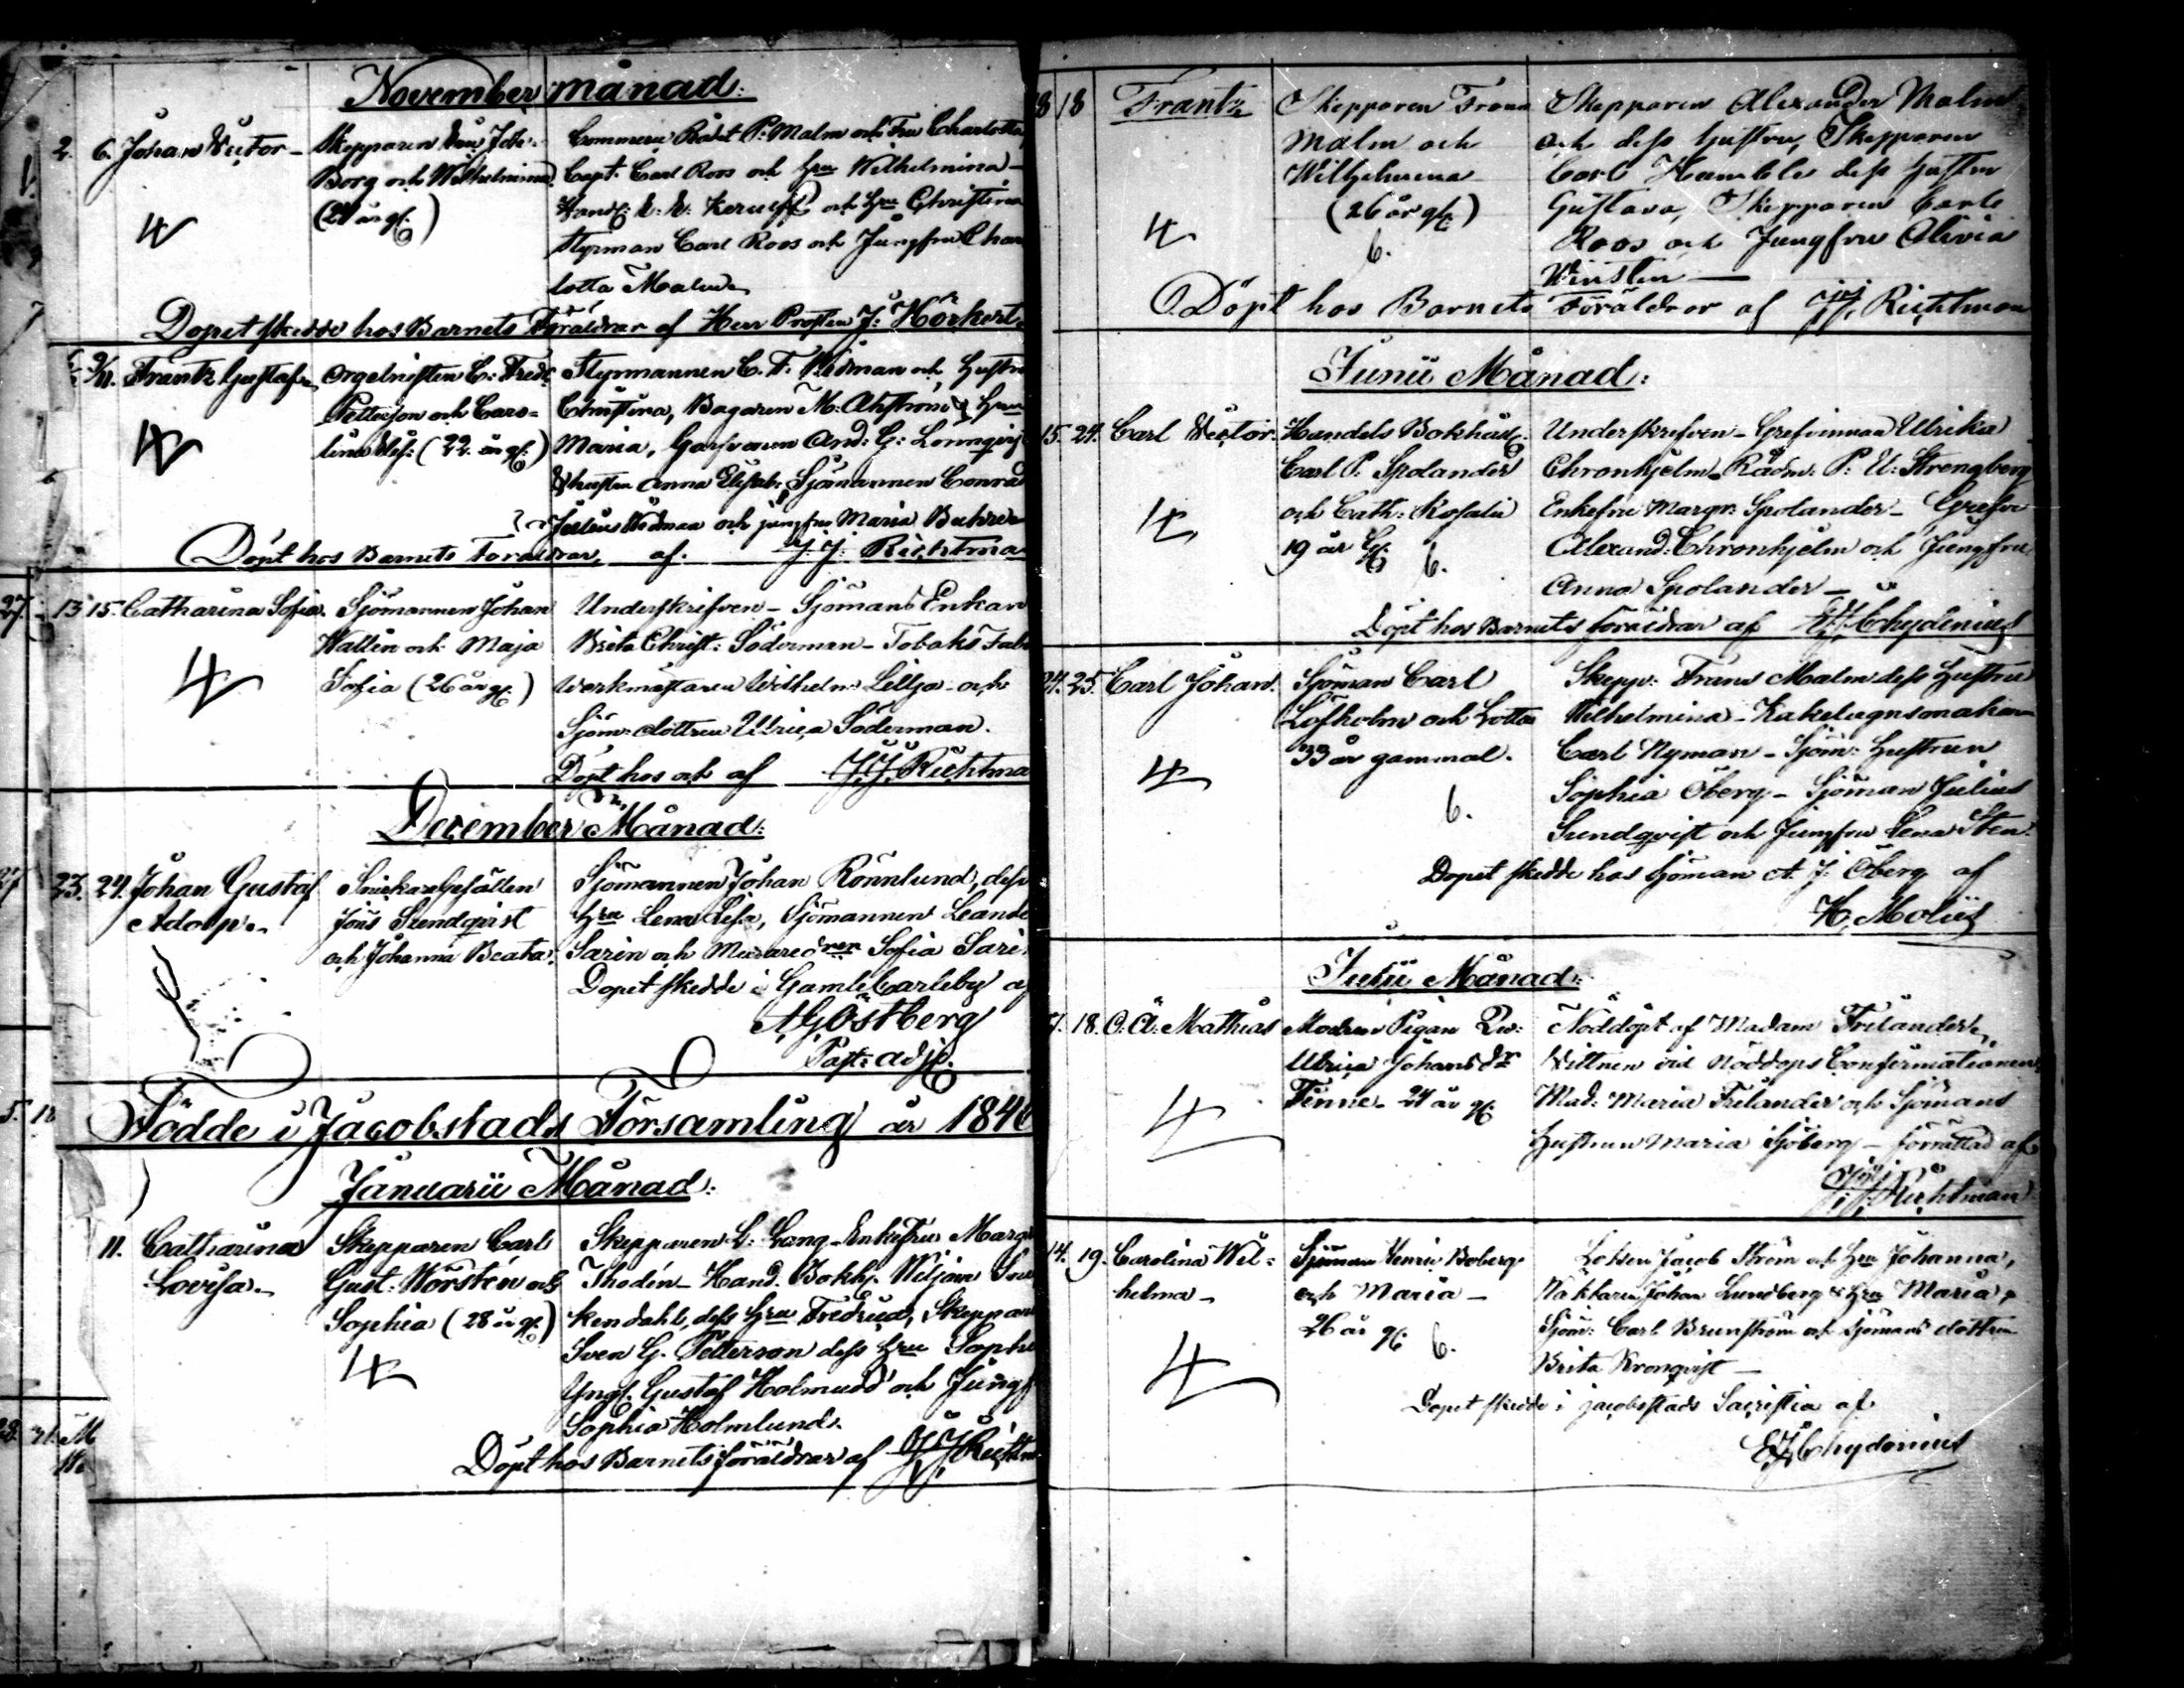 November månad:
2. 6. Johan Victor - Skepparen
Borg och Wilhelmina
(21 år gl.)
Commerce Rådet P. Malm och Fru Charlotta
Capt. Carl Roos och Hru Wilhelmina -
och Hru Christina
Styrman Carl Roos och Jungfru Char
lotta Malm
Dopet skedde hos Barnets Föräldrar af Herr Prosten J: Hörkert
9/11. Frantz Gustaf Orgelnisten C: Fredr
Petterson och Caro=
lina (22 år gl.)
Styrmannen C. F. Widman och Hustru
Christina, Bagaren M: Ahlström & Hru
Maria, Garfvaren And: G: Lönnqvist
& hustru Anna Elisab: Sjömannen Conrad
Julius Widman och jungfru Maria
Döpt hos Barnets Föräldrar, af. J. J. Richtma
13 15. Catharina Sofia. Sjömannen Johan
Wallin och Maja
Sofia (26 år gl.)
Underskrifven - Sjömans Enkan
Brita Christ: Söderman - Tobaks Fab
Werkmästaren Wilhelm Lillja - och
Sjöm: dottren Ulrica Söderman.
Döpt hos och af J. J. Richtma
December Månad:
23. 24. Johan Gustaf
Adolp.
Snickare Gesällen
Jons Sundqvist
och Johanna Beata.
Sjömannen Johan Rönnlund, dess
Hru Lena Lisa, Sjömannen Leande
Sarin och Sofia Sari
Dopet skedde i Gamle Carleby af
A G Östberg
Past: adj.
Födde i Jacobstads Församling år 1846
Januarii Månad:
11. Catharina
Lovisa.
Skepparen Carl
Gust. Norstén och
Sophia (28 år gl.)
Skepparen L: Lang - Enkefru Marg
Thodén - Hand. Bokh. Wiljam Soe
kendahl, dess Hru Fredrica, Skeppare
Sven G. Petterson dess Hru Sophi
Yngl. Gustaf Holmudd och Jungf
Sophia Holmlund.
Döpt hos Barnets föräldrar af J J Richtm
18 Frantz
Skepparen Frans
Malm och
Wilhelmina
(26 år gl.)
6.
Skepparen Alexander Malm
och dess hustru, Skepparen
Carl Humble dess hustru
Gustava, Skepparen Carl
Roos och Jungfru Olivia
Winsten
Döpt hos Barnets Föräldrar af J. J. Richtman
Junii Månad:
15. 24. Carl Victor. Handels Bokhåll.
Carl P. Spolander
och Cath: Rosalie
19 år Gl.
6.
Underskrifven - Grefvinnan Ulrika
Chronhjelm - Rådm: P: U: Strengberg
Enkefru Margr: Spolander - Grefve
Alexand: Chronhjelm och Jungfru
Anna Spolander -
Döpt hos Barnets föräldrar af Chydenius
24. 25. Carl Johan. Sjöman Carl
Löfholm och Lotta
33 år gammal.
6.
Skepp: Frans Malm dess hustru
Wilhelmina - Kakelugnsmakaren
Carl Nyman - Sjöm: Hustrun
Sophia Öberg - Sjöman Julius
Sundqvist och Jungfru Lena Sten
Dopet skedde hos sjöman A. J. Öberg af
H. Molis
Julii Månad:
18. O. Ä. Mathias
Modren Pigan
Ulrica Johansdr
Finne - 24 år gl.
Nöddöpt af Madam Frilander,
Vittnen vid Nöddops Confirmationen
Mad: Maria Frilander och Sjömans
Hustrun Maria Sjöberg - förrättad af
J. J. Richtman
14. 19. Carolina Wil=
helma -
Sjöman Henric Boberg
och Maria -
26 år gl. 6.
Lotsen Jacob Ström och Hru Johanna,
Johan Lundberg & Hru Maria,
Sjöm: Carl Brunström och Sjömans dottren
Brita Kronqvist -
Dopet skedde i Jacobstads Sacristia af
Chydenius